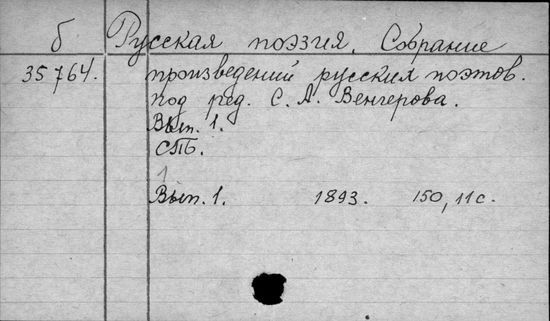 б Русская поэзия. Собрание
35764. произведений русских поэтов.
под ред. С. А. Венгерова.
Вып. 1.
СПБ.
1
Вып. 1. 1893. 150, 11 с.